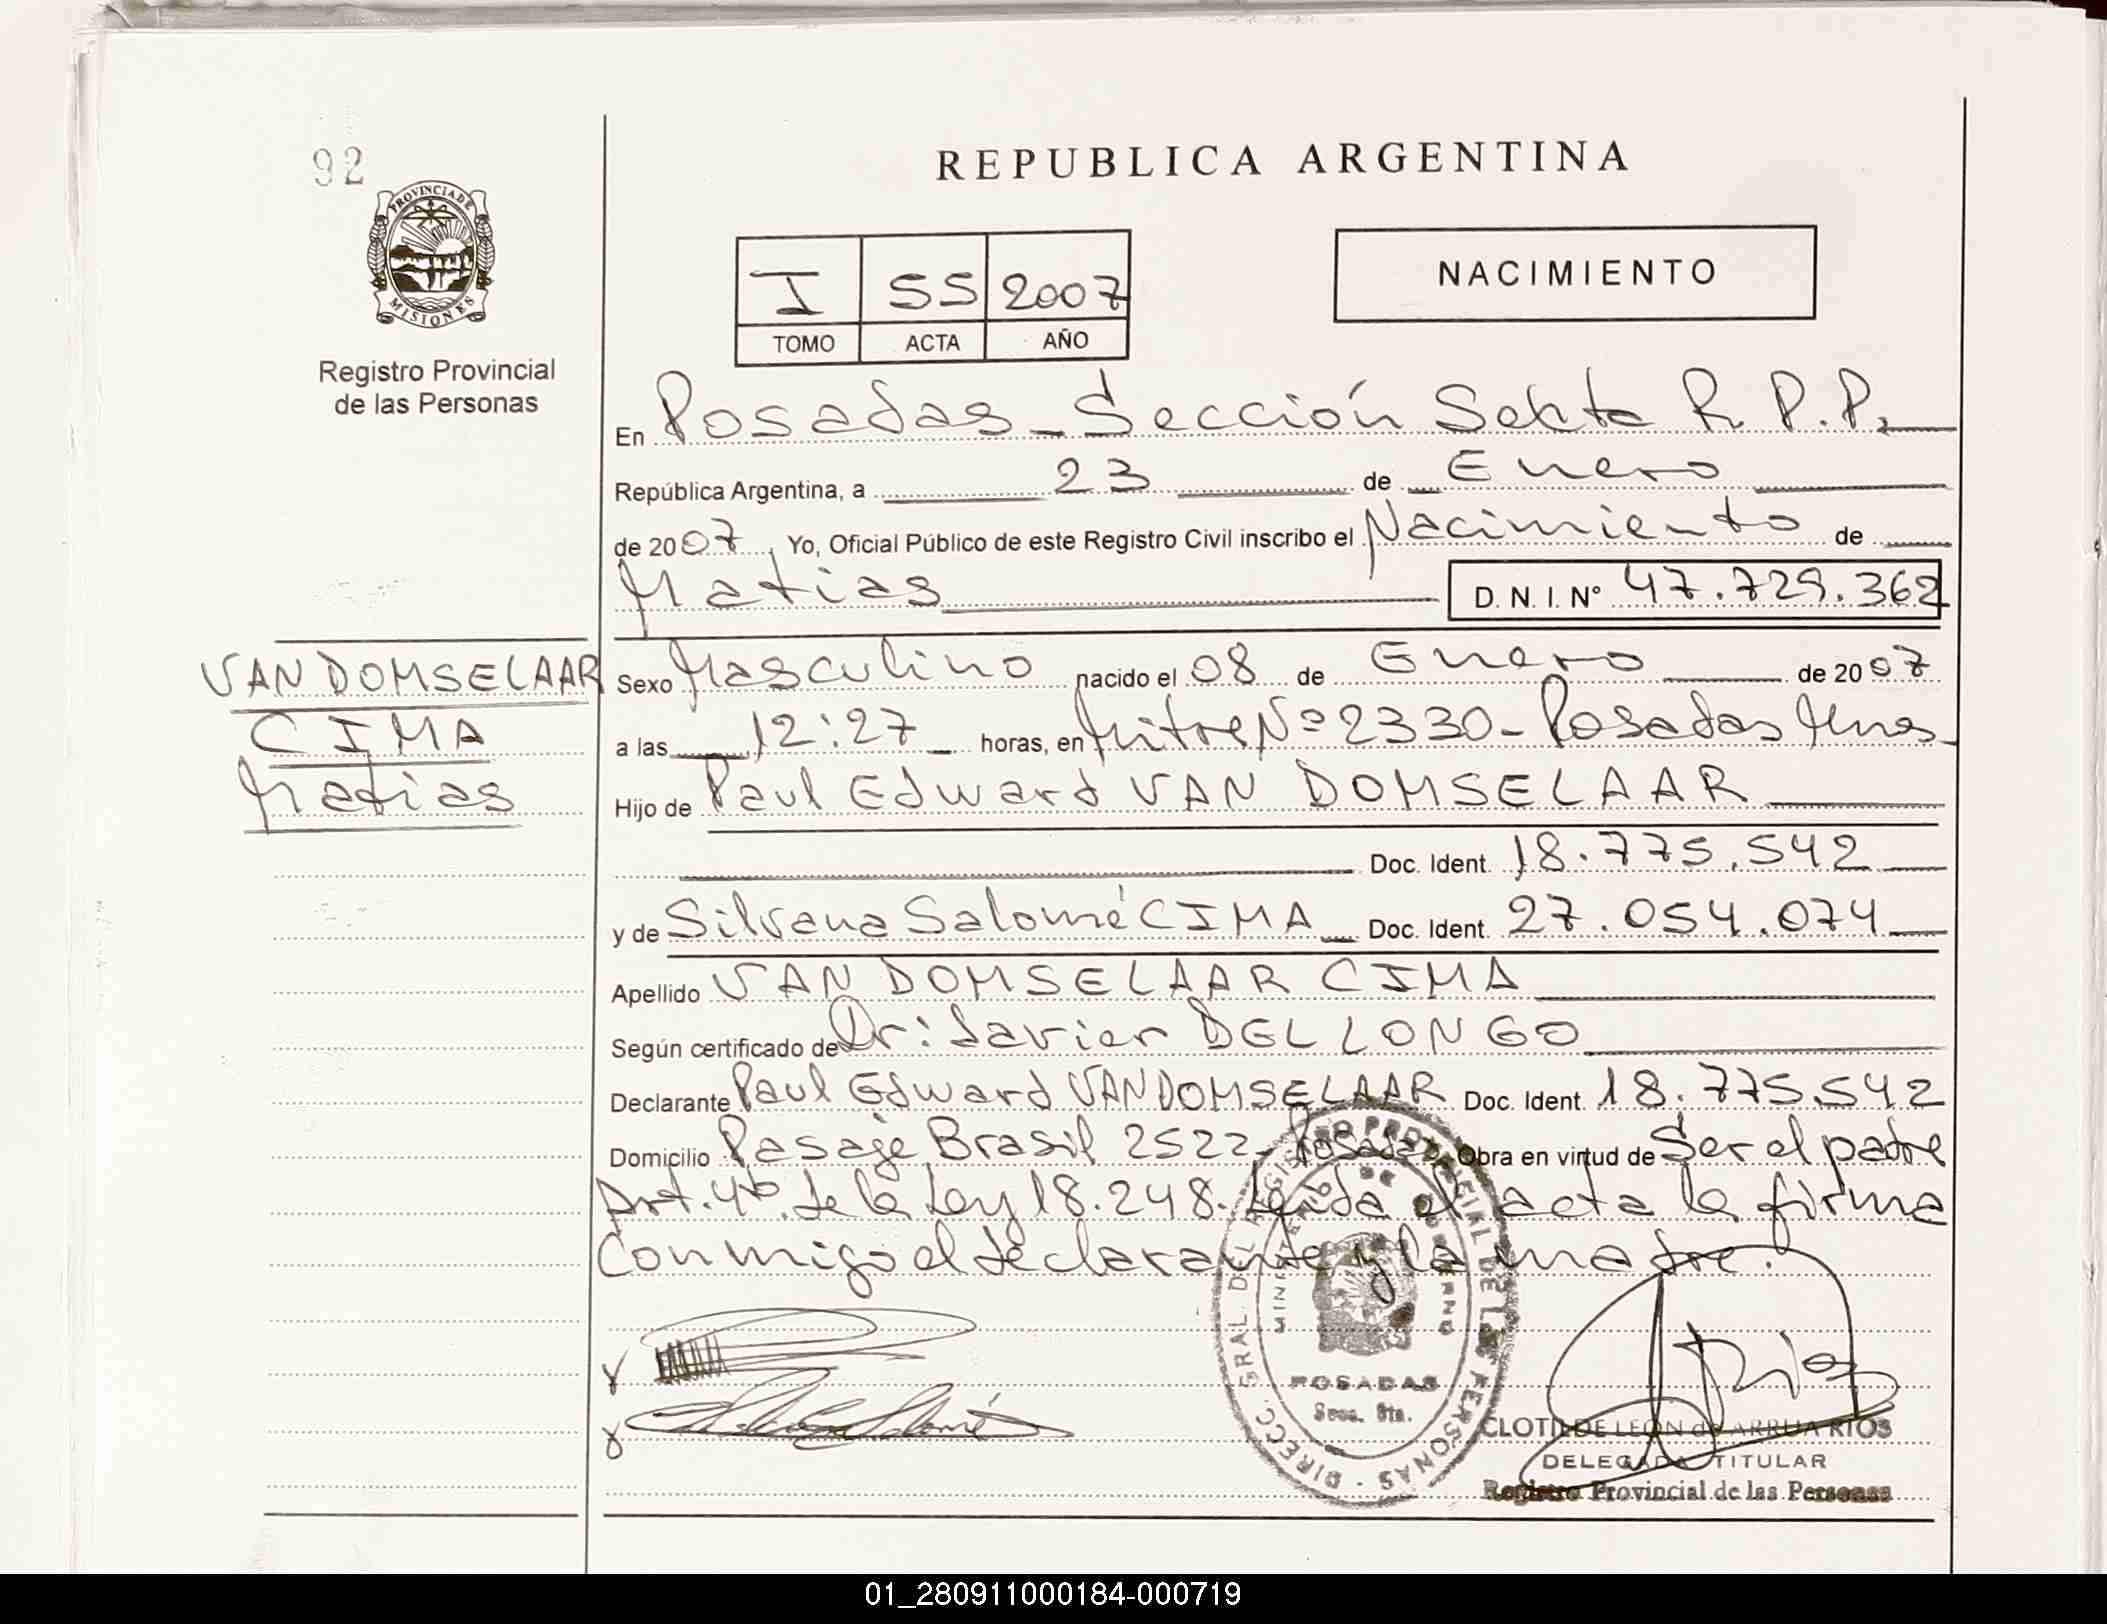 92
REPUBLICA ARGENTINA
PROVINCIA DE
MISIONES
Registro Provincial
de las Personas
I 55 2007
TOMO ACTA AÑO
NACIMIENTO
En Posadas - Sección Sexta R.P.P.
República Argentina, a 23 de Enero
de 2007, Yo, Oficial Público de este Registro Civil inscribo el Nacimiento de
Matias D. N. I. Nº 47.729.362
VAN DOMSELAAR
CIMA
Matias
Sexo Masculino nacido el 08 de Enero de 2007
a las 12:27 horas, en Mitre Nº 2330 - Posadas Mnes
Hijo de Paul Edward VAN DOMSELAAR
Doc. Ident. 18.775.542
y de Silvana Salomé CIMA Doc. Ident. 27.054.074
Apellido VAN DOMSELAAR CIMA
Según certificado de Dr: Javier DEL LONGO
Declarante Paul Edward VAN DOMSELAAR Doc. Ident. 18.775.542
Domicilio Pasaje Brasil 2522 - Posadas Obra en virtud de Ser el padre
Art. 4to. de la Ley 18.248. Leída el acta la firma
Conmigo el declarante y la madre.
DIRECC. GRAL. DEL REGISTRO PROVINCIAL DE LAS PERSONAS
MINISTERIO DE GOBIERNO
POSADAS
Secc. 6ta.
CLOTILDE LEON de ARRUA RIOS
DELEGADA TITULAR
Registro Provincial de las Personas
01_280911000184-000719